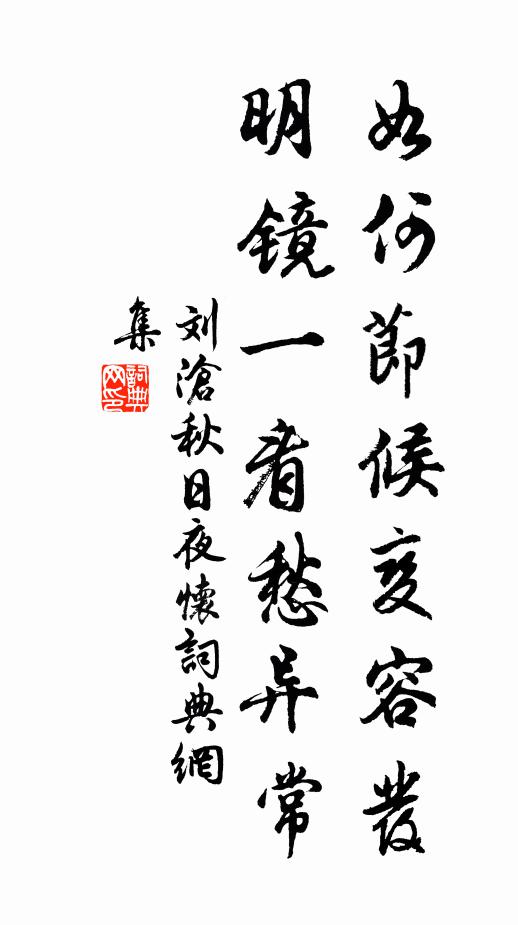 如何節候变容发
明镜一看愁异常
刘滄秋日夜懷詞典網
集
詞典网印